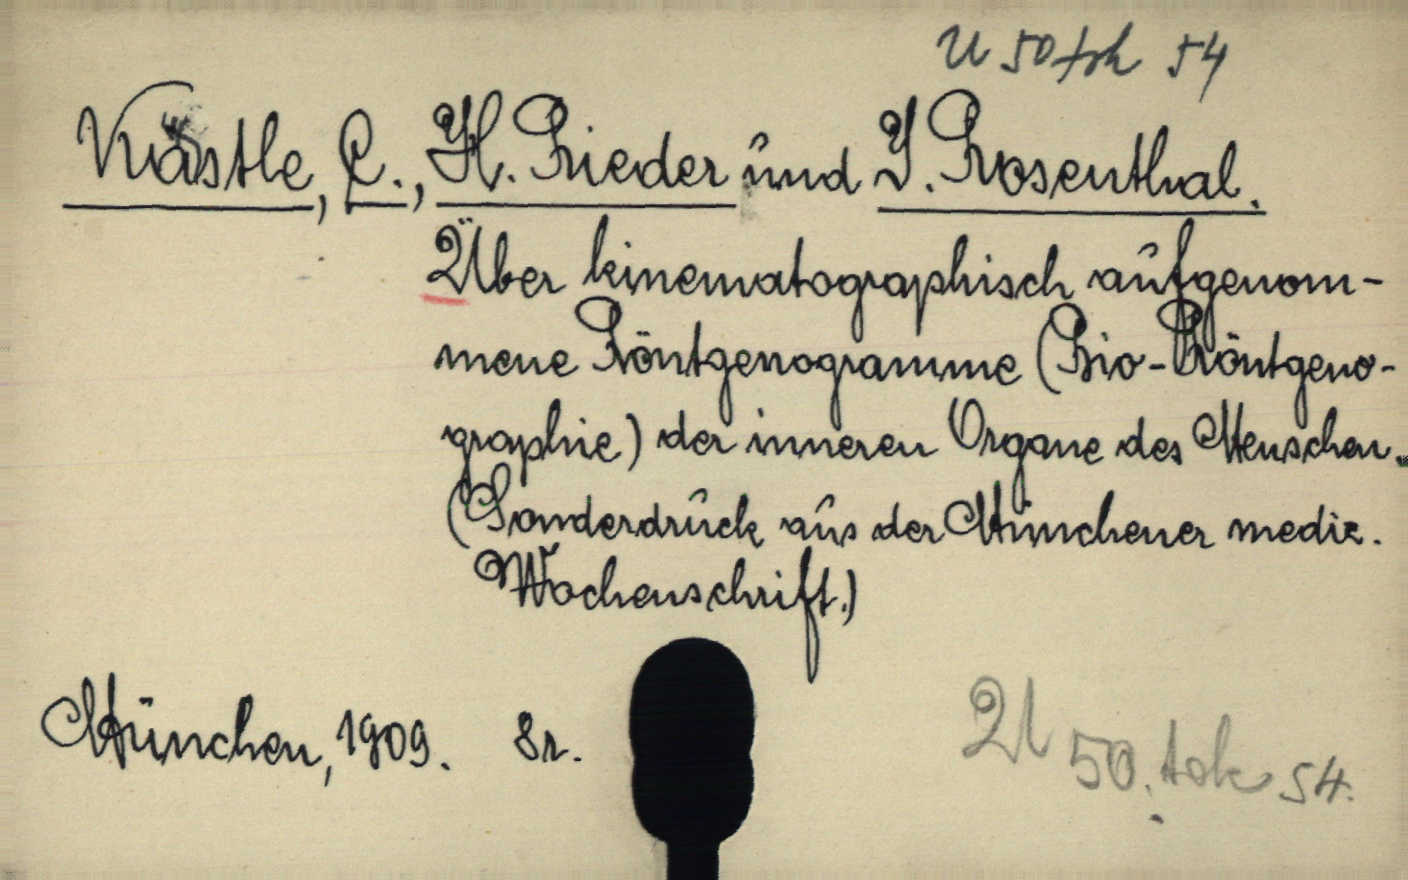 U 50 tok 54
Kästle, C., H. Rieder und J. Rosenthal.
Über kinematographisch aufgenom-
mene Röntgenogramme (Bio-Röntgeno-
graphie) der inneren Organe des Menschen.
(Sonderdruck aus der Münchener mediz.
Wochenschrift.)
München, 1909. 8r.
U 50. tok 54.